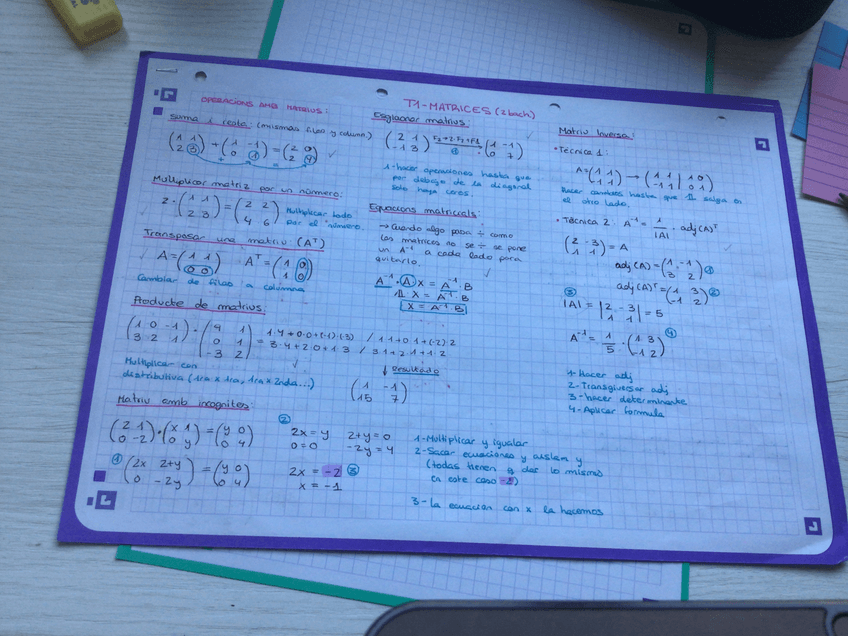 T1-MATRICES (2bach)
OPERACIONS AMB MATRIUS:
Suma i resta: (mismas filas y column)
(1 1 / 2 3) + (1 -1 / 0 1) = (2 0 / 2 4)
Multiplicar matriz por un número:
2 · (1 1 / 2 3) = (2 2 / 4 6)
Multiplicar todo
por el número
Transposar una matriu (Aᵀ)
A = (1 1 / 0 0) Aᵀ = (1 0 / 1 0)
Cambiar de filas a columna
Producte de matrius:
(1 0 -1 / 3 2 1) · (4 1 / 0 1 / -3 2) = 1·4+0·0+(-1)·(-3) / 1·1+0·1+(-1)·2
3·4+2·0+1·3 / 3·1+2·1+1·2
Multiplicar con
distributiva (1ra x 1ra, 1ra x 2nda...)
↓ Resultado
(1 -1 / 15 7)
Matriu amb incognites:
(2 1 / 0 -2) · (x 1 / 0 y) = (y 0 / 0 4)
① (2x 2+y / 0 -2y) = (y 0 / 0 4)
②
2x = y 2+y = 0
0 = 0 -2y = 4
2x = -2 ③
x = -1
1-Multiplicar y igualar
2-Sacar ecuaciones y aislam y
(todas tienen q dar lo mismo
en este caso -2)
3-la ecuacion con x la hacemos
Esglaonar matrius:
(2 1 / -1 3) F2+2·F2+F1 → (1 -1 / 0 7)
①
1-hacer operaciones hasta que
por debajo de la diagonal
solo haya ceros.
Equacions matricials:
→ Cuando algo pasa ÷ como
las matrices no se ÷ se pone
un A⁻¹ a cada lado para
quitarlo.
A⁻¹ · A · X = A⁻¹ · B
1l X = A⁻¹ · B
X = A⁻¹ · B
Matriu Inversa:
• Tècnica 1:
A = (1 1 / -1 1) → (1 1 / -1 1 | 1 0 / 0 1)
Hacer cambios hasta que 1l salga en
el otro lado.
• Tècnica 2: A⁻¹ = 1/|A| · adj(A)ᵀ
(2 -3 / 1 1) = A
adj(A) = (1 -1 / 3 2) ①
adj(A)ᵀ = (1 3 / -1 2) ②
③
|A| = |2 -3 / 1 1| = 5
A⁻¹ = 1/5 · (1 3 / -1 2) ④
1-Hacer adj
2-Transgiversar adj
3-hacer determinante
4-Aplicar formula